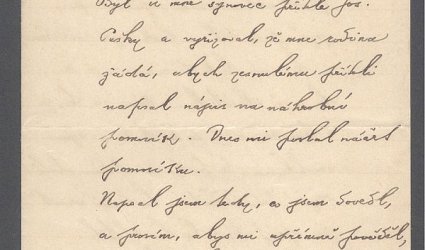 Byl u mne synovec přítele Jos.
Cašky a vyřizoval, že mne rodina
žádá, abych zesnulému příteli
napsal nápis na náhrobní
pomník. Dnes mi poslal náčrt
pomníku.
Napsal jsem tedy, co jsem dovedl,
a prosím, abys mi upřímně pověděl,